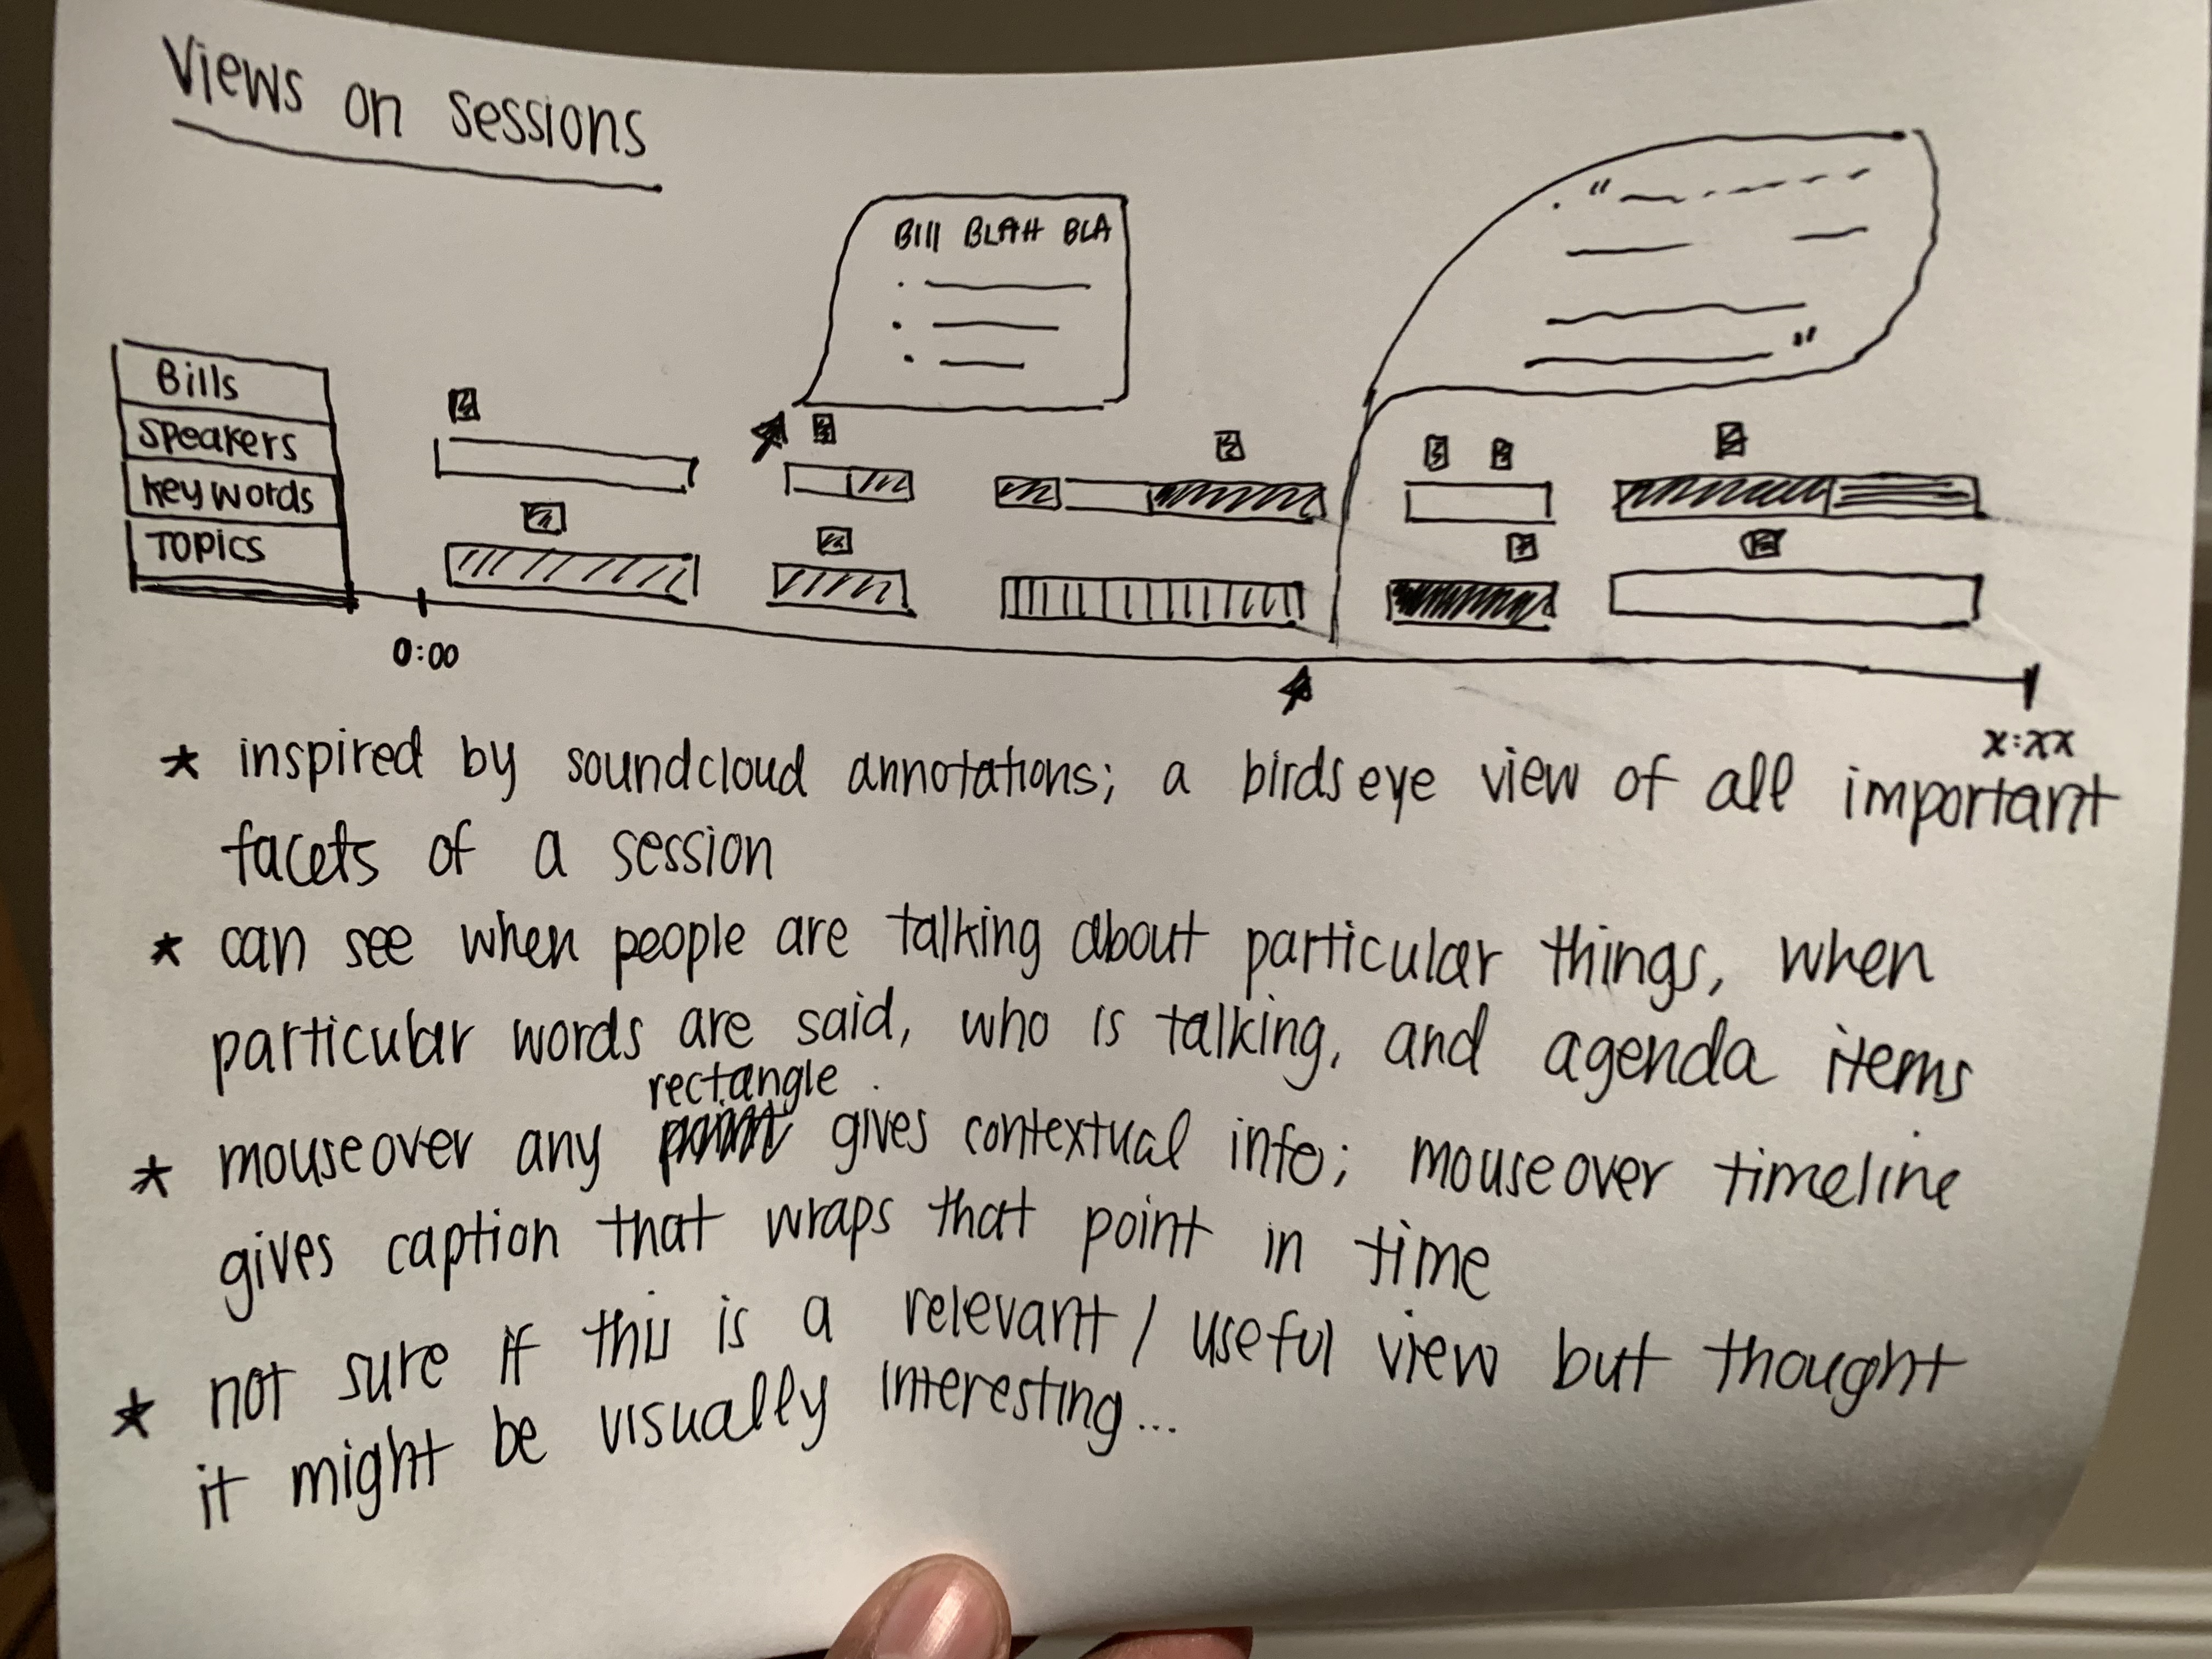 Views on sessions
Bill BLAH BLA
"
"
Bills
Speakers
Keywords
Topics
0:00
x:xx
* inspired by soundcloud annotations; a birds eye view of all important
facets of a session
* can see when people are talking about particular things, when
particular words are said, who is talking, and agenda items
rectangle
* mouseover any gives contextual info; mouseover timeline
gives caption that wraps that point in time
* not sure if this is a relevant / useful view but thought
it might be visually interesting...